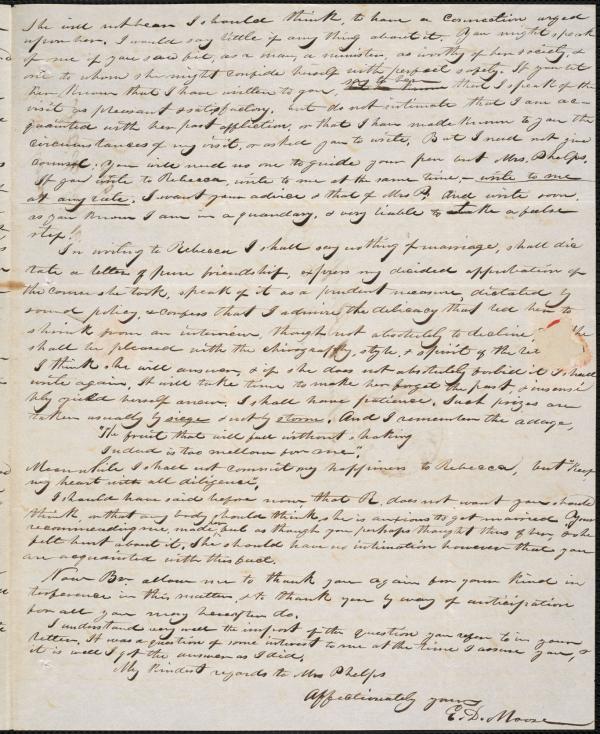 She will not bear I should think, to have a connection urged
upon her. I would say little if any thing about it. You might speak
of me if you saw but, as a man, a minister, as worthy of her society, &
one to whom she might confide herself with perfect safety. If you let
her know that I have written to you, say to her that I speak of the
visit as pleasant & satisfactory. but do not intimate that I am ac-
quainted with her past affliction, or that I have made known to you the
circumstances of my visit, or asked you to write. But I need not give
counsel. You will need no one to guide your pen but Mrs. Phelps.
If you write to Rebecca, write to me at the same time, - write to me
at any rate. I want your advice & that of Mrs P. And write soon,
as you know I am in a quandary, & very liable to take a false
step.
In writing to Rebecca I shall say nothing of marriage, shall dic
tate a letter of pure friendship, express my decided approbation of
the course she took, speak of it as a prudent measure, dictated by
sound policy, & confess that I admire the delicacy that led her to
shrink from an interview, though not absolutely to decline, The
shall be pleased with the chirography, style, & spirit of the
I think she will answer, & if she does not absolutely forbid it I shall
write again. It will take time to make her forget the past, & insensi
bly yield herself anew. I shall have patience. Such prizes are
taken usually by siege & not by storm. And I remember the adage,
"The fruit that will fall without shaking
Indeed is too mellow for me".
Meanwhile I shall not commit my happiness to Rebecca, but "Keep
my heart with all diligence".
I should have said before now, that R. does not want you should
think, or that any body should think she is anxious to get married. Your
recommending me, made her feel as though you perhaps thought thus of her, & she
felt hurt about it. She should have no intimation however that you
are acquainted with this fact.
Now Br. allow me to thank you again for your kind in
terference in this matter, & to thank you by way of anticipation
for all you may hereafter do.
I understand very well the import of the question you refer to in your
letter. It was a question of some interest to me at the time I assure you, &
it is well I got the answer as I did.
My kindest regards to Mrs Phelps
Affectionately yours
E. D. Moore